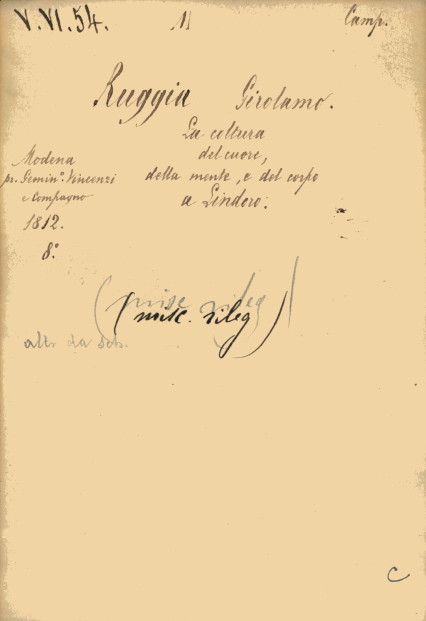 V.VI.54. M Camp.
Ruggia Girolamo.
La coltura
del cuore,
della mente, e del corpo
a Lindoro.
Modena
pr. Gemin.º Vincenzi
e Compagno
1812.
8.º
(misc rileg)
(misc. rileg)
C